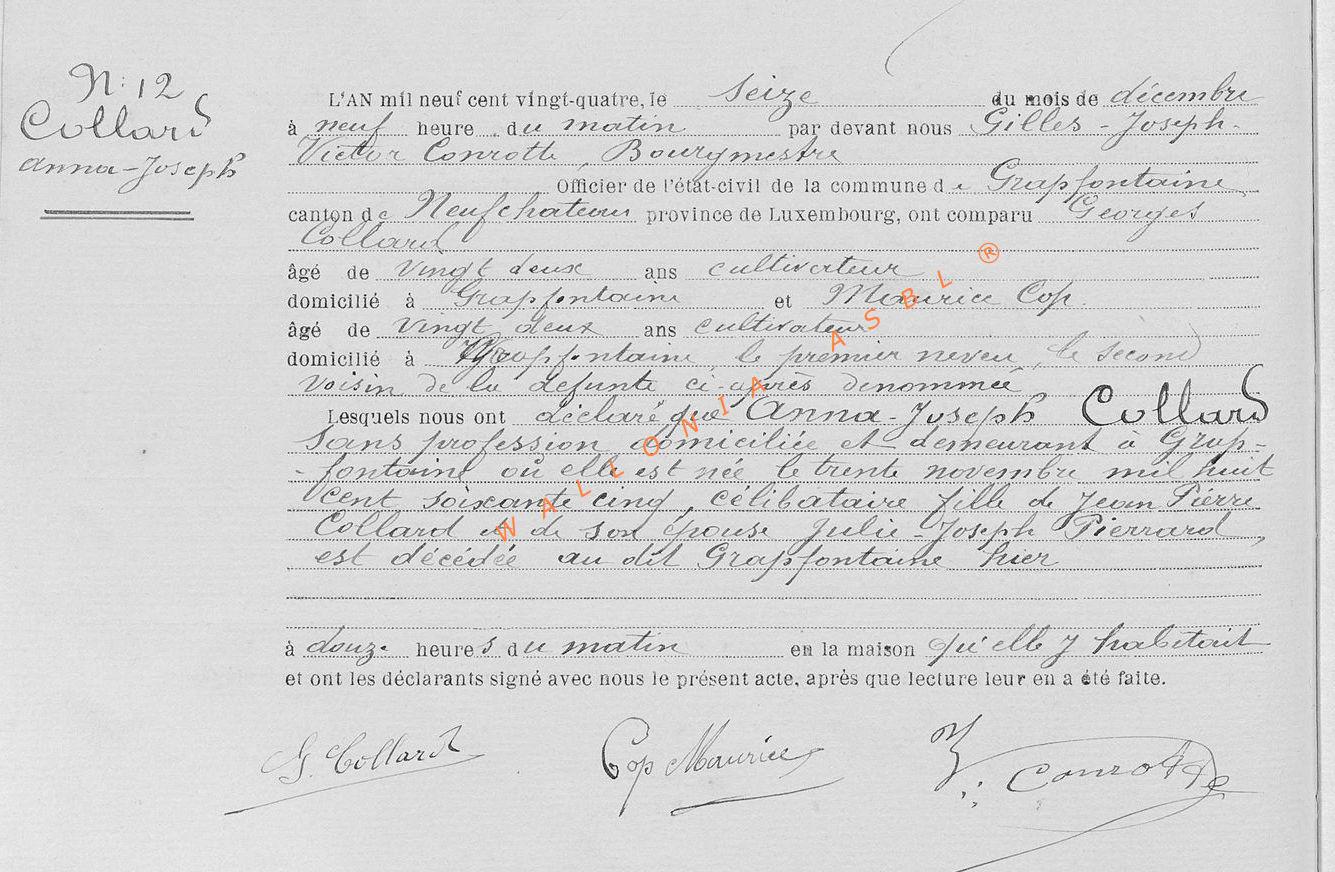 N: 12
Collard
Anna-Joseph
L'AN mil neuf cent vingt-quatre, le seize du mois de décembre
à neuf heure du matin par devant nous Gilles-Joseph-
Victor Conrotte, Bourgmestre
Officier de l'état-civil de la commune de Grapfontaine
canton de Neufchateau province de Luxembourg, ont comparu Georges
Collard
âgé de vingt deux ans cultivateur
domicilié à Grapfontaine et Maurice Cop.
âgé de vingt deux ans cultivateur
domicilié à Grapfontaine, le premier neveu, le second
voisin de la défunte ci-après dénommée
Lesquels nous ont déclaré que Anna-Joseph Collard
sans profession domiciliée et demeurant à Grap-
-fontaine où elle est née le trente novembre mil huit
cent soixante cinq, célibataire fille de Jean Pierre
Collard et de son épouse Julie-Joseph Pierrard,
est décédée au dit Grapfontaine hier
à douze heures du matin en la maison qu'elle y habitait
et ont les déclarants signé avec nous le présent acte, après que lecture leur en a été faite.
G. Collard Cop Maurice V. Conrotte
WALLONIA ASBL ®